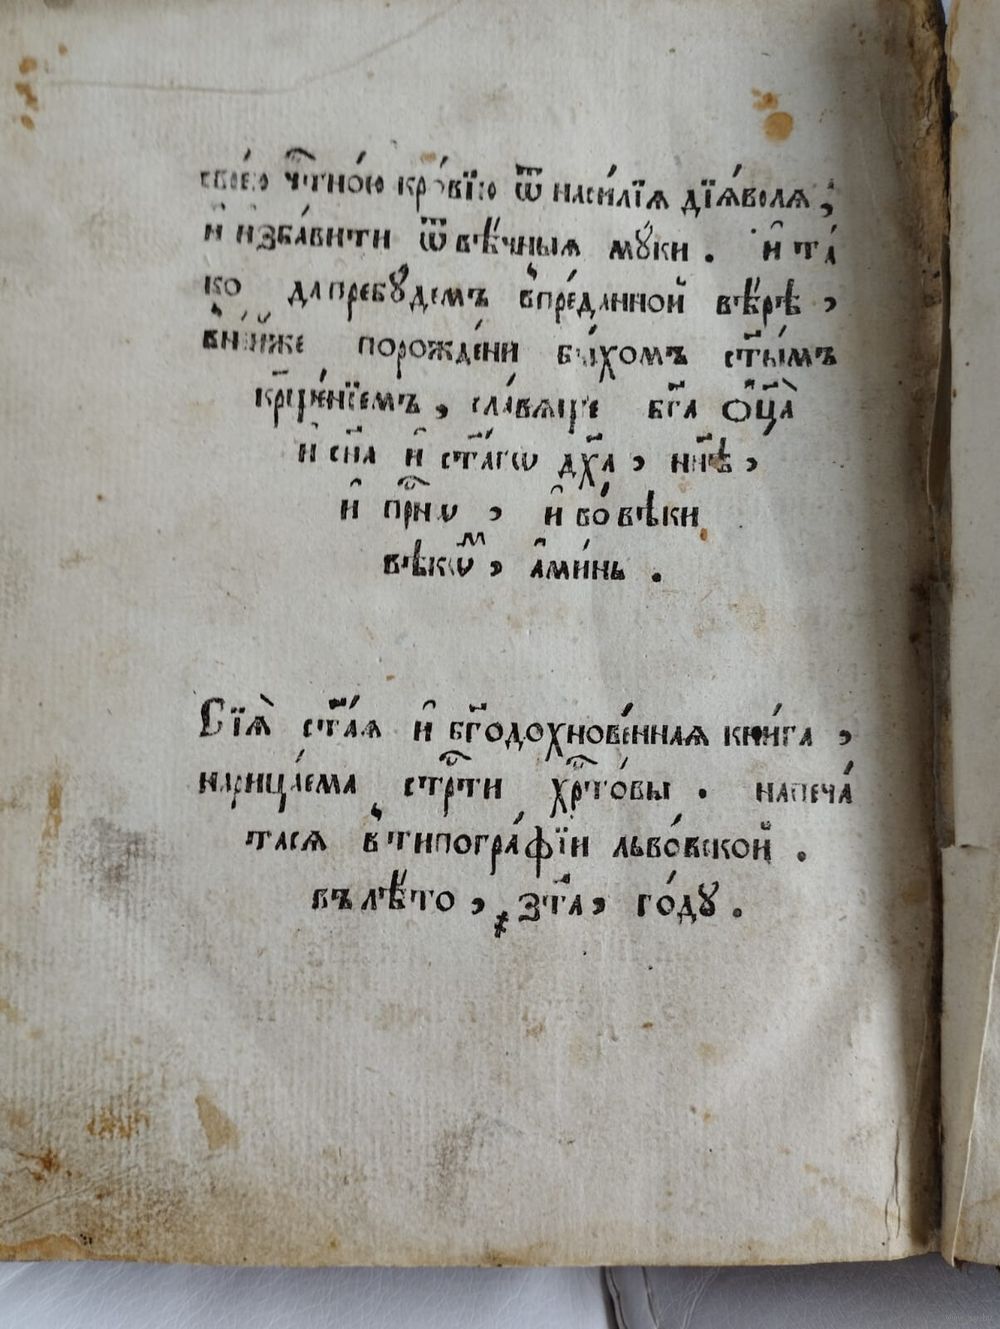 свое́ю чⷭ҇тно́ю кро́вїю ѿ наси́лїѧ дїѧ́волѧ,
и҆ и҆зба́вити ѿ вѣ́чныѧ мꙋ́ки . и҆ та́
ко да пребꙋ́демъ в̾пре́данной вѣ́рѣ ,
в̾ню́же порожде́ни бы́хомъ ст҃ы́мъ
крⷭ҇ще́нїемъ , сла́вѧще бг҃а ѻ҆ц҃а̀
и҆ сн҃а и҆ ст҃а́гѡ дх҃а , нн҃ѣ ,
и҆ прⷭ҇нѡ , и҆ во́ вѣки
вѣкѡⷨ , а҆ми́нь .
Сїѧ̀ ст҃а́ѧ и҆ бг҃одохнове́ннаѧ кни́га ,
нарица́ема стрⷭ҇ти хрⷭ҇то́вы . напеча́
тасѧ в̾ типогра́фїи льво́вской .
въ лѣ́то , ҂зт҃а , го́дꙋ .